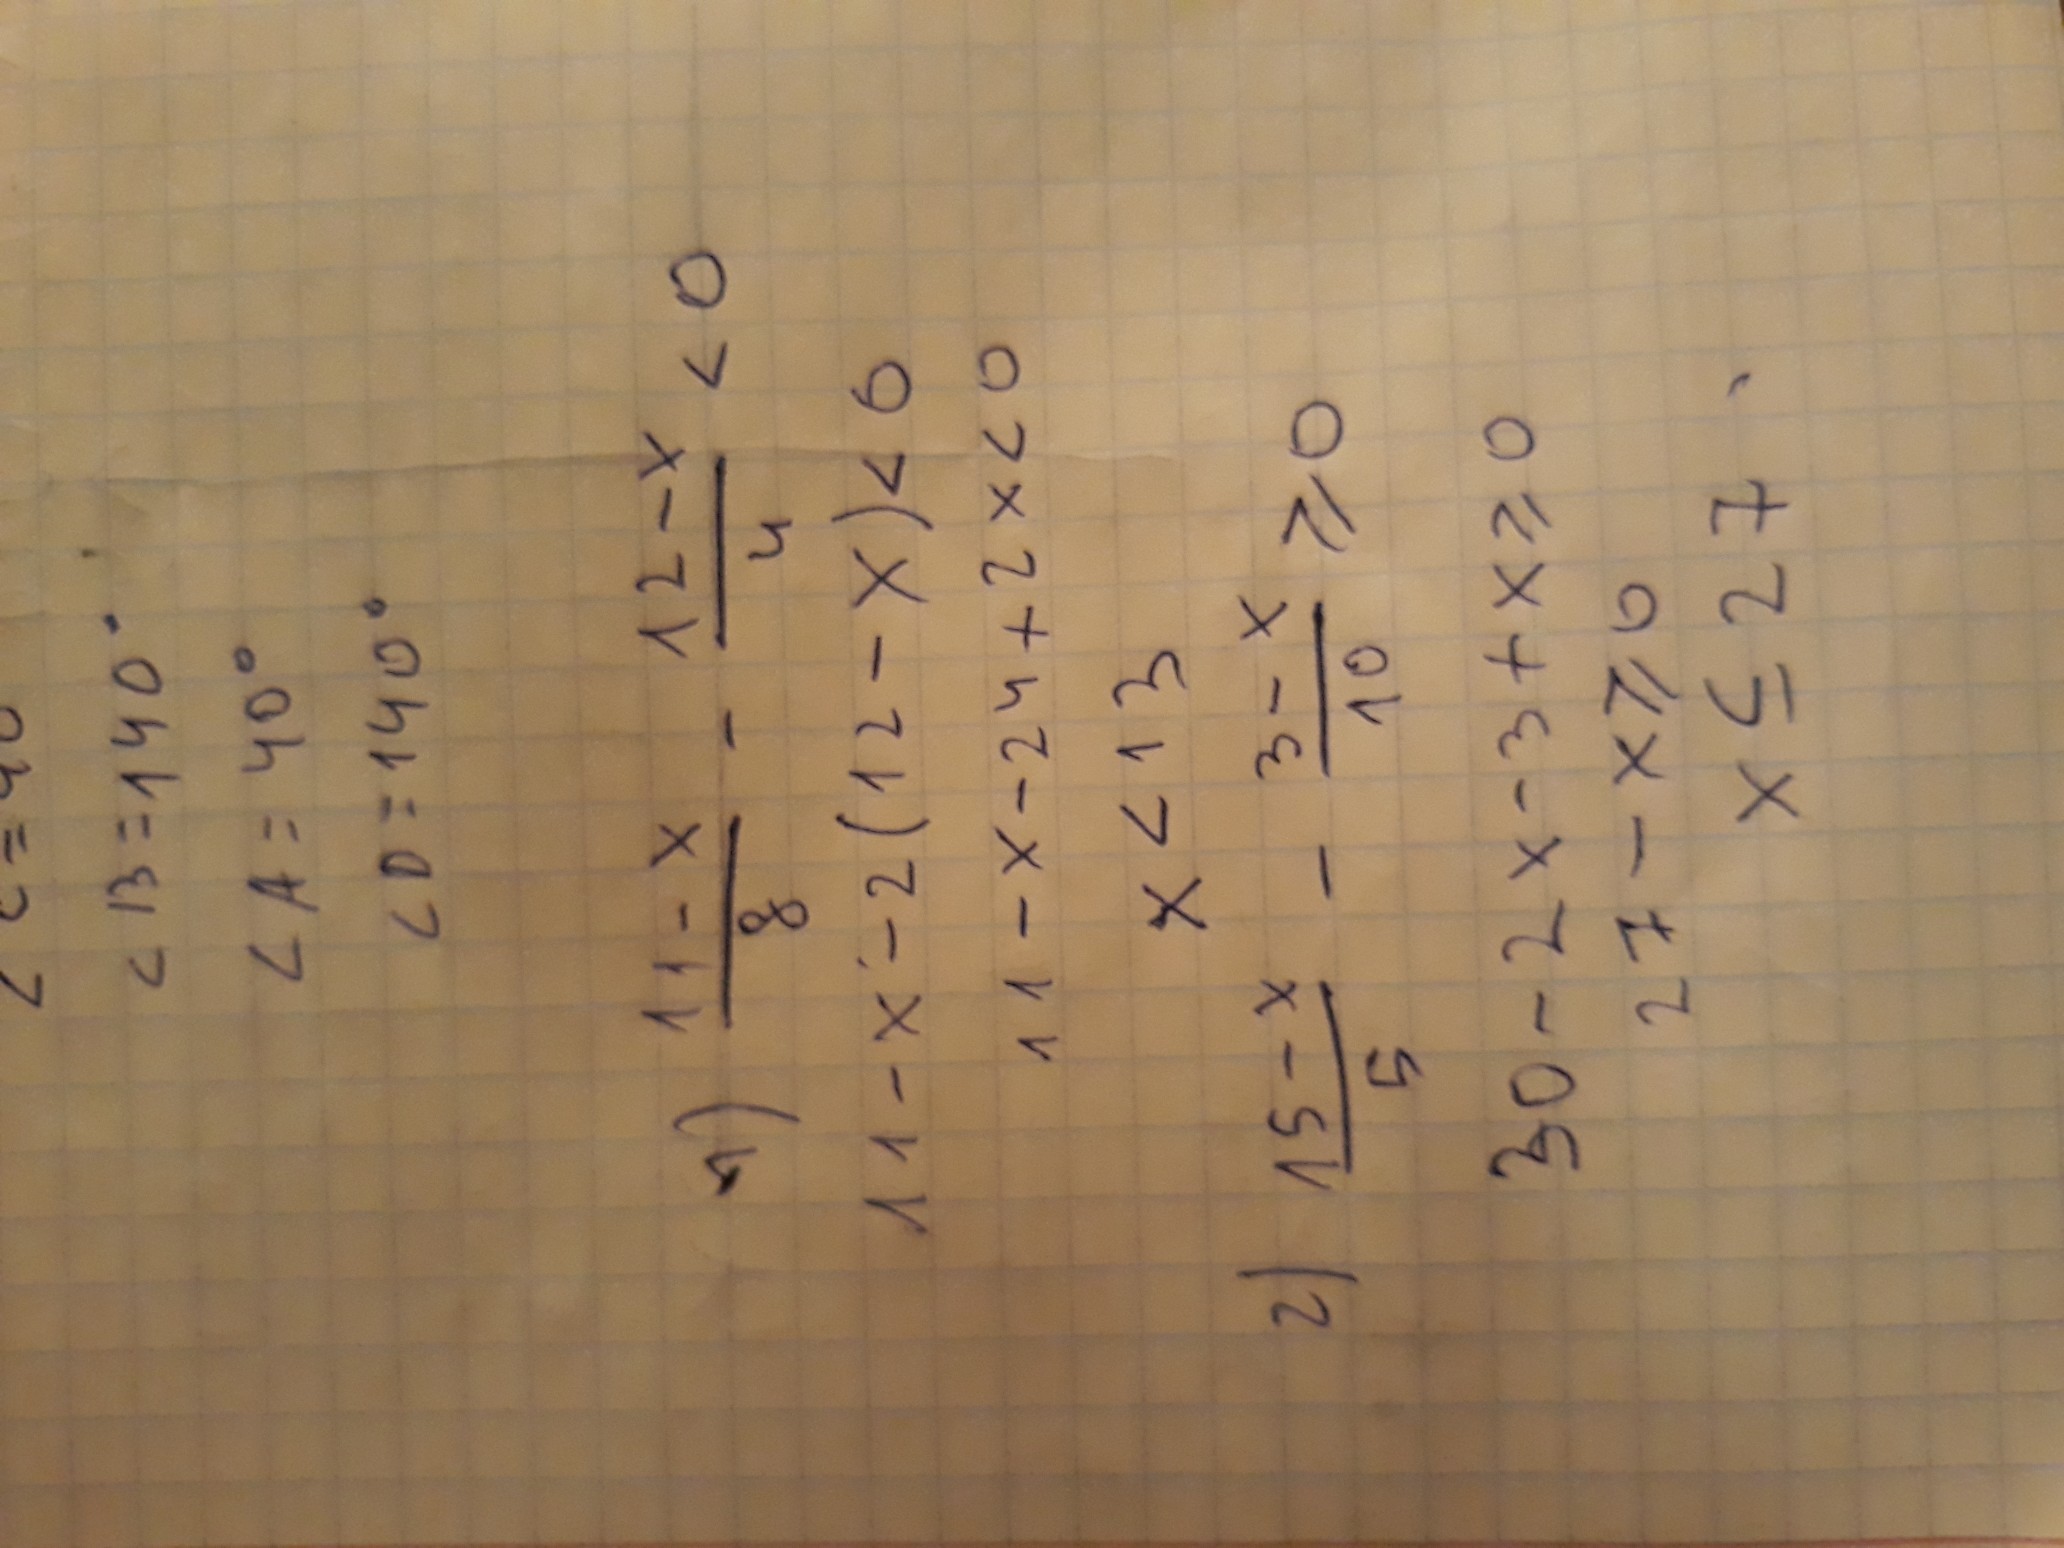 ∠B=140°
∠A=40°
∠D=140°
1) (11-x)/8 - (12-x)/4 < 0
11-x-2(12-x)<0
11-x-24+2x<0
x<13
2) (15-x)/5 - (3-x)/10 ⩾ 0
30-2x-3+x⩾0
27-x⩾0
x≤27